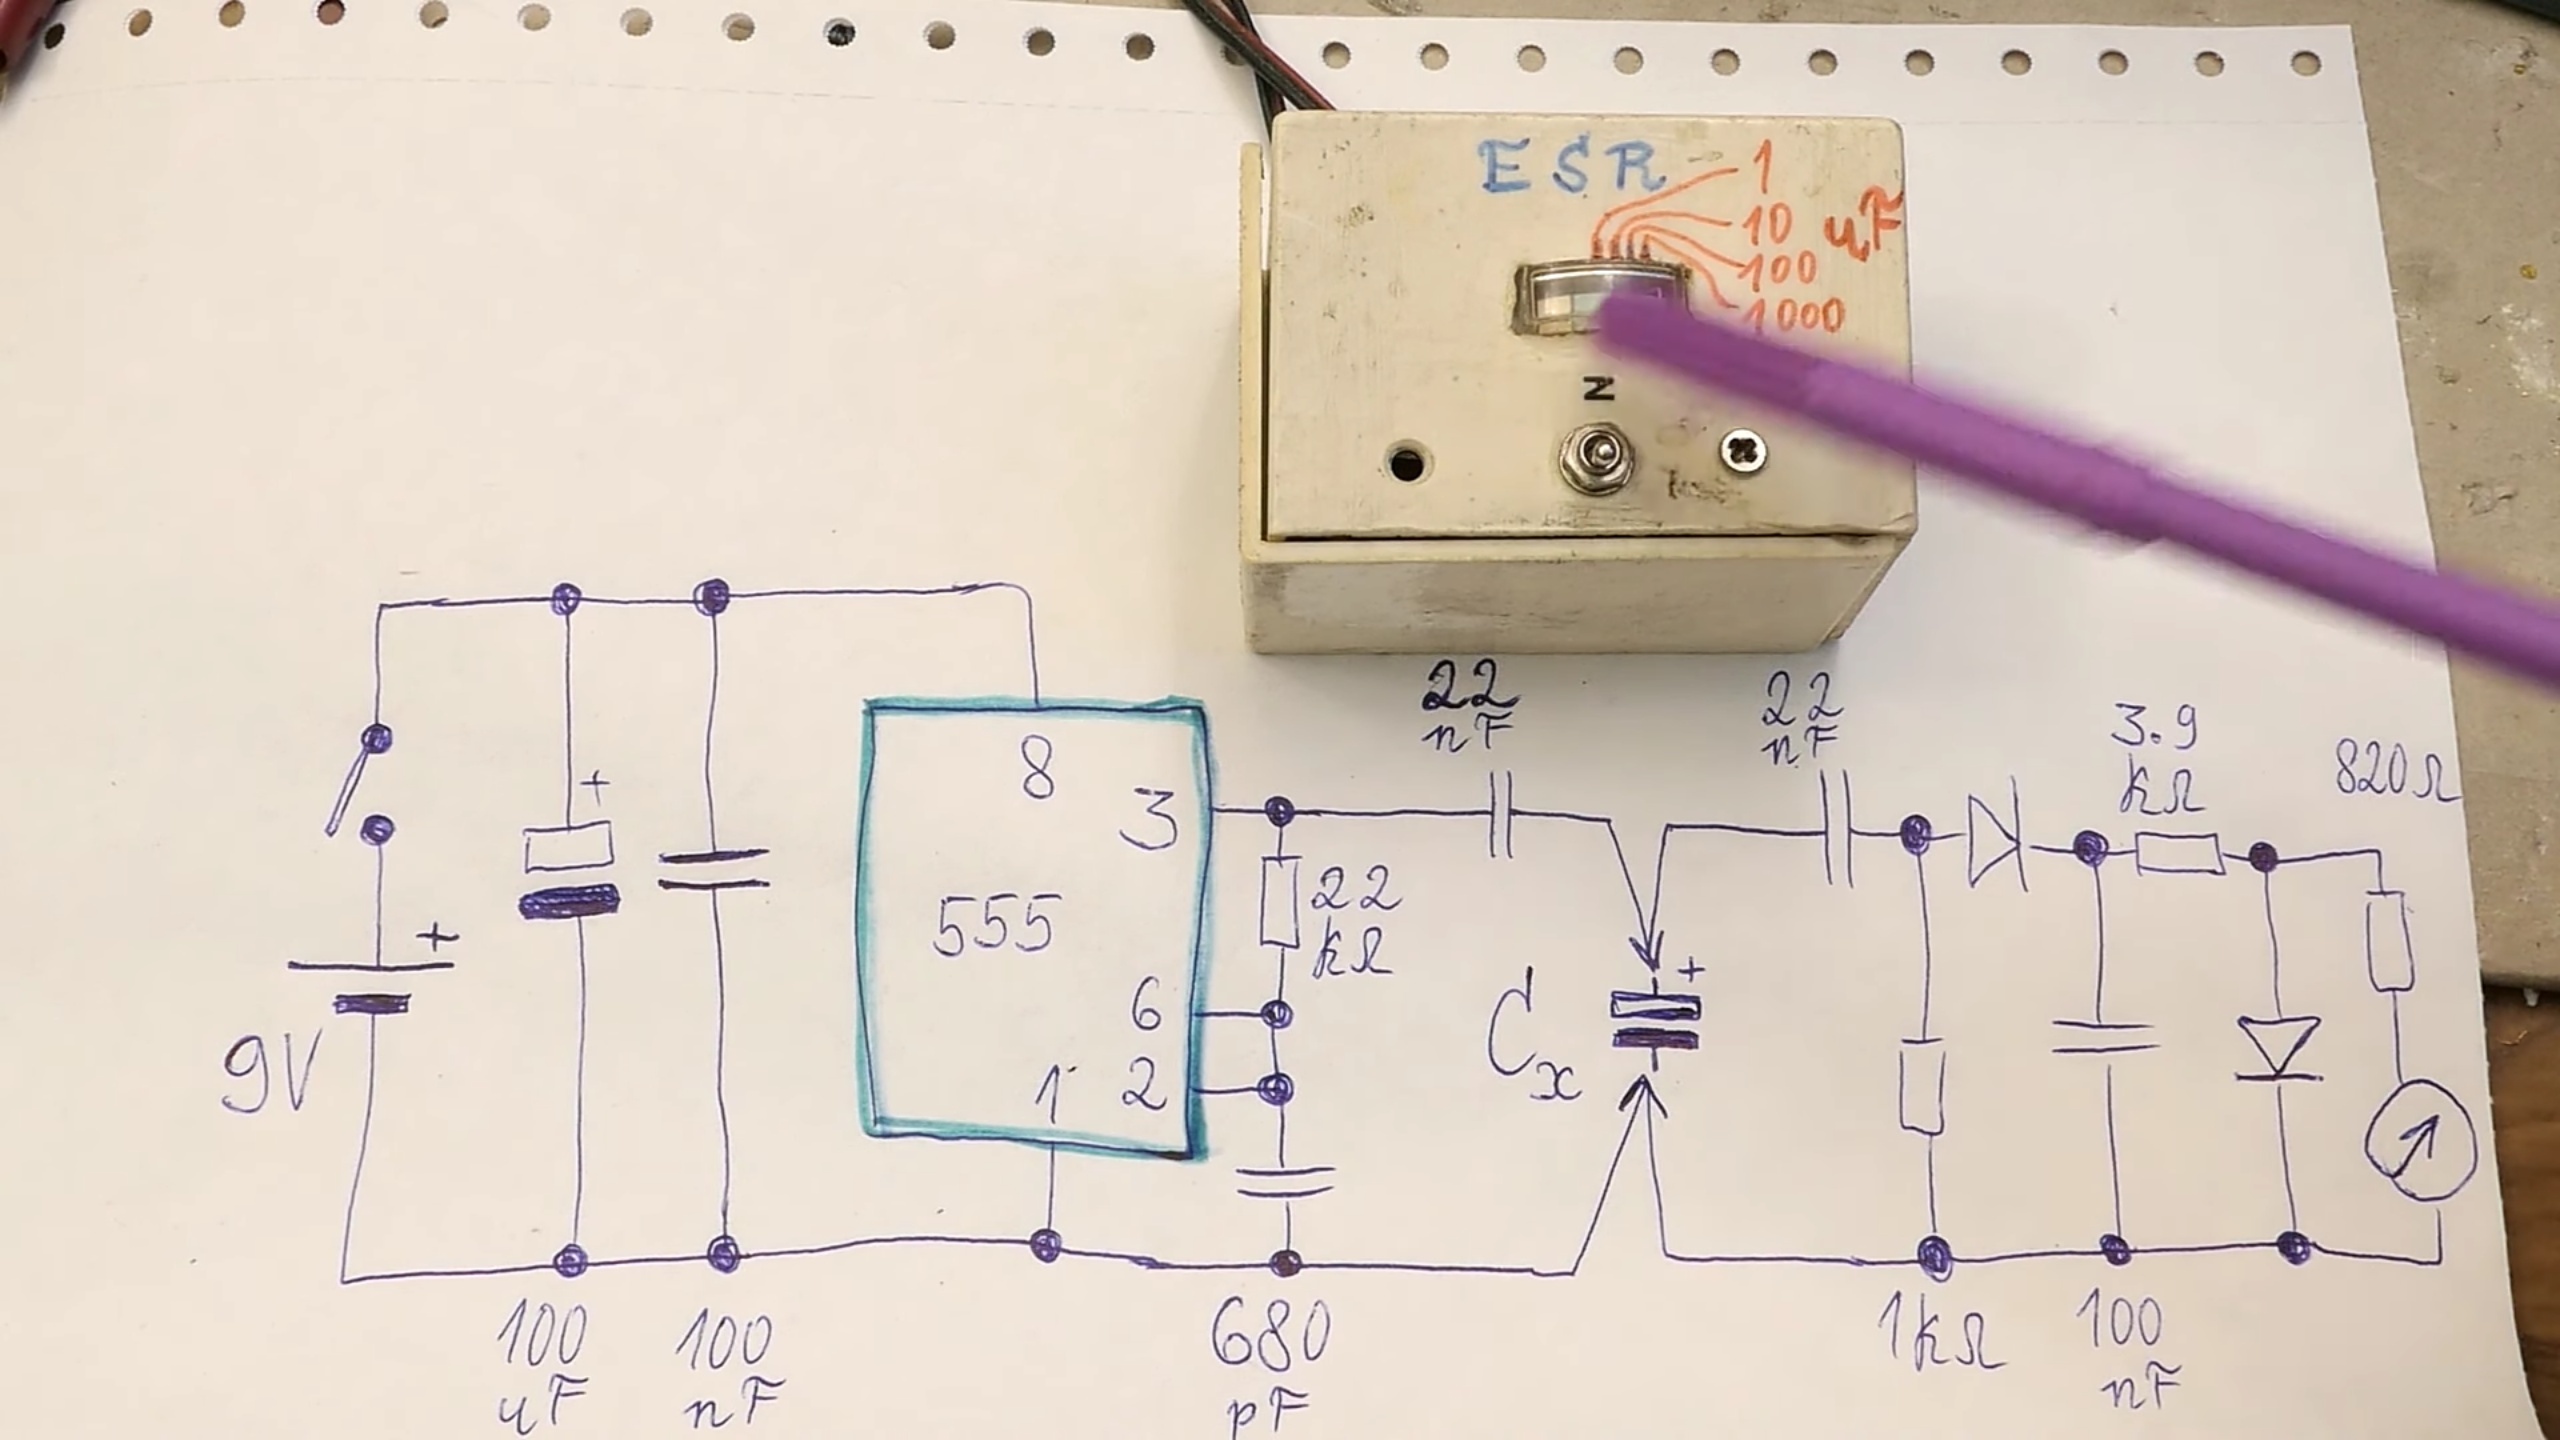 ESR
1
10
100
1000
uF
N
22
nF
22
nF
3.9
kΩ
820Ω
+
8
3
555
6
2
1
22
kΩ
+
9V
Cx
+
100
uF
100
nF
680
pF
1kΩ
100
nF